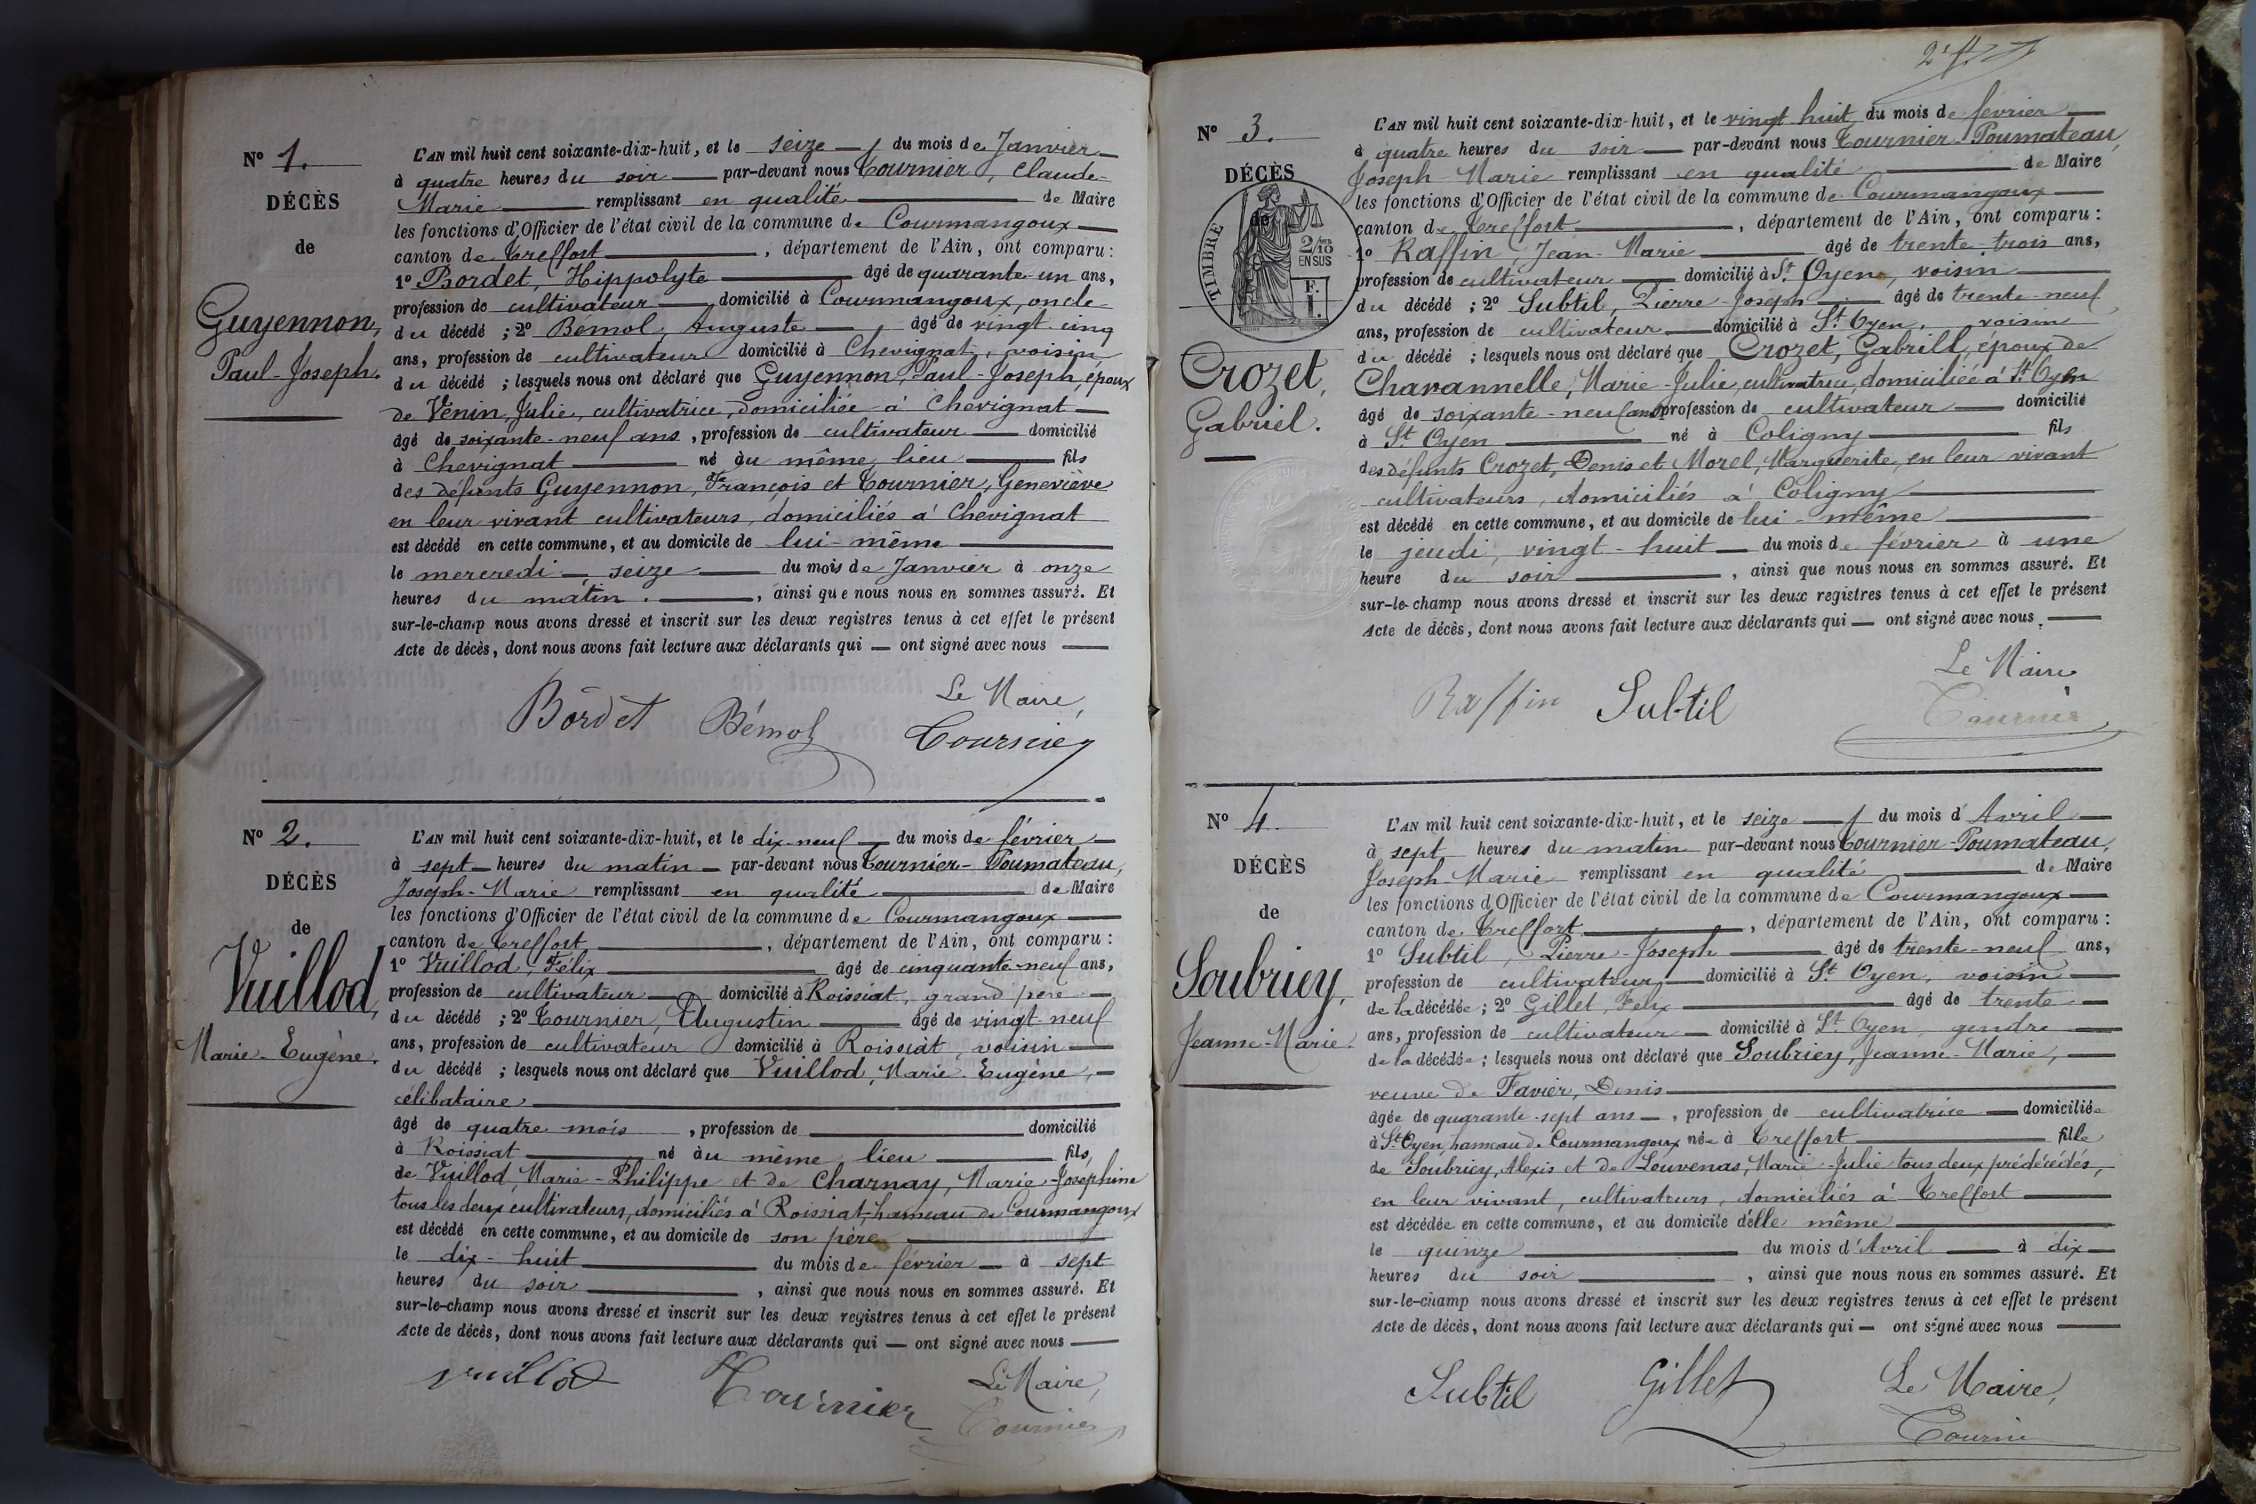 Nº 1.
DÉCÈS
de
Guyennon,
Paul-Joseph.
L'AN mil huit cent soixante-dix-huit, et le seize du mois de Janvier
à quatre heures du soir par-devant nous Tournier, Claude-
Marie remplissant en qualité de Maire
les fonctions d'Officier de l'état civil de la commune de Courmangoux
canton de Treffort, département de l'Ain, ont comparu :
1º Bordet, Hippolyte âgé de quarante-un ans,
profession de cultivateur domicilié à Courmangoux, oncle
du décédé ; 2º Bémol, Auguste âgé de vingt-cinq
ans, profession de cultivateur domicilié à Chevignat, voisin
du décédé ; lesquels nous ont déclaré que Guyennon, Paul-Joseph, époux
de Venin, Julie, cultivatrice, domiciliée à Chevignat
âgé de soixante-neuf ans, profession de cultivateur domicilié
à Chevignat né au même lieu fils
des défunts Guyennon, François et Tournier, Geneviève
en leur vivant cultivateurs, domiciliés à Chevignat
est décédé en cette commune, et au domicile de lui-même
le mercredi, seize du mois de Janvier à onze
heures du matin., ainsi que nous nous en sommes assuré. Et
sur-le-champ nous avons dressé et inscrit sur les deux registres tenus à cet effet le présent
Acte de décès, dont nous avons fait lecture aux déclarants qui ont signé avec nous
Le Maire,
Bordet Bémol Tournier
Nº 2.
DÉCÈS
de
Vuillod,
Marie-Eugène.
L'AN mil huit cent soixante-dix-huit, et le dix-neuf du mois de février
à sept heures du matin par-devant nous Tournier-Poumateau,
Joseph-Marie remplissant en qualité de Maire
les fonctions d'Officier de l'état civil de la commune de Courmangoux
canton de Treffort, département de l'Ain, ont comparu :
1º Vuillod, Félix âgé de cinquante-neuf ans,
profession de cultivateur domicilié à Roissiat, grand père
du décédé ; 2º Tournier, Augustin âgé de vingt-neuf
ans, profession de cultivateur domicilié à Roissiat, voisin
du décédé ; lesquels nous ont déclaré que Vuillod, Marie-Eugène,
célibataire
âgé de quatre mois, profession de domicilié
à Roissiat né au même lieu fils
de Vuillod, Marie-Philippe et de Charnay, Marie-Joséphine
tous les deux cultivateurs, domiciliés à Roissiat, hameau de Courmangoux
est décédé en cette commune, et au domicile de son père
le dix-huit du mois de février à sept
heures du soir, ainsi que nous nous en sommes assuré. Et
sur-le-champ nous avons dressé et inscrit sur les deux registres tenus à cet effet le présent
Acte de décès, dont nous avons fait lecture aux déclarants qui ont signé avec nous
Le Maire,
Vuillod Tournier Tournier
2e f.
Nº 3.
DÉCÈS
de
TIMBRE
2/10 EN SUS
F. 1.
Crozet,
Gabriel.
L'AN mil huit cent soixante-dix-huit, et le vingt huit du mois de février
à quatre heures du soir par-devant nous Tournier-Poumateau,
Joseph-Marie remplissant en qualité de Maire
les fonctions d'Officier de l'état civil de la commune de Courmangoux
canton de Treffort, département de l'Ain, ont comparu :
1º Raffin, Jean-Marie âgé de trente-trois ans,
profession de cultivateur domicilié à St Oyen, voisin
du décédé ; 2º Subtil, Pierre-Joseph âgé de trente-neuf
ans, profession de cultivateur domicilié à St Oyen, voisin
du décédé ; lesquels nous ont déclaré que Crozet, Gabriel, époux de
Chavannelle, Marie-Julie, cultivatrice, domiciliée à St Oyen
âgé de soixante-neuf ans profession de cultivateur domicilié
à St Oyen né à Coligny fils
des défunts Crozet, Denis et Morel, Marguerite, en leur vivant
cultivateurs, domiciliés à Coligny
est décédé en cette commune, et au domicile de lui-même
le jeudi, vingt-huit du mois de février à une
heure du soir, ainsi que nous nous en sommes assuré. Et
sur-le-champ nous avons dressé et inscrit sur les deux registres tenus à cet effet le présent
Acte de décès, dont nous avons fait lecture aux déclarants qui ont signé avec nous.
Le Maire
Raffin Subtil Tournier
Nº 4.
DÉCÈS
de
Soubriey,
Jeanne-Marie.
L'AN mil huit cent soixante-dix-huit, et le seize du mois d'Avril
à sept heures du matin par-devant nous Tournier-Poumateau,
Joseph-Marie remplissant en qualité de Maire
les fonctions d'Officier de l'état civil de la commune de Courmangoux
canton de Treffort, département de l'Ain, ont comparu :
1º Subtil, Pierre-Joseph âgé de trente-neuf ans,
profession de cultivateur domicilié à St Oyen, voisin
de la décédée ; 2º Gillet, Felix âgé de trente
ans, profession de cultivateur domicilié à St Oyen, gendre
de la décédée ; lesquels nous ont déclaré que Soubriey, Jeanne-Marie,
veuve de Favier, Denis
âgée de quarante-sept ans, profession de cultivatrice domiciliée
à St Oyen, hameau de Courmangoux née à Treffort fille
de Soubriey, Alexis et de Louvenas, Marie-Julie tous deux prédécédés,
en leur vivant, cultivateurs, domiciliés à Treffort
est décédée en cette commune, et au domicile d'elle même
le quinze du mois d'Avril à dix
heures du soir, ainsi que nous nous en sommes assuré. Et
sur-le-champ nous avons dressé et inscrit sur les deux registres tenus à cet effet le présent
Acte de décès, dont nous avons fait lecture aux déclarants qui ont signé avec nous
Subtil Gillet Le Maire,
Tournier